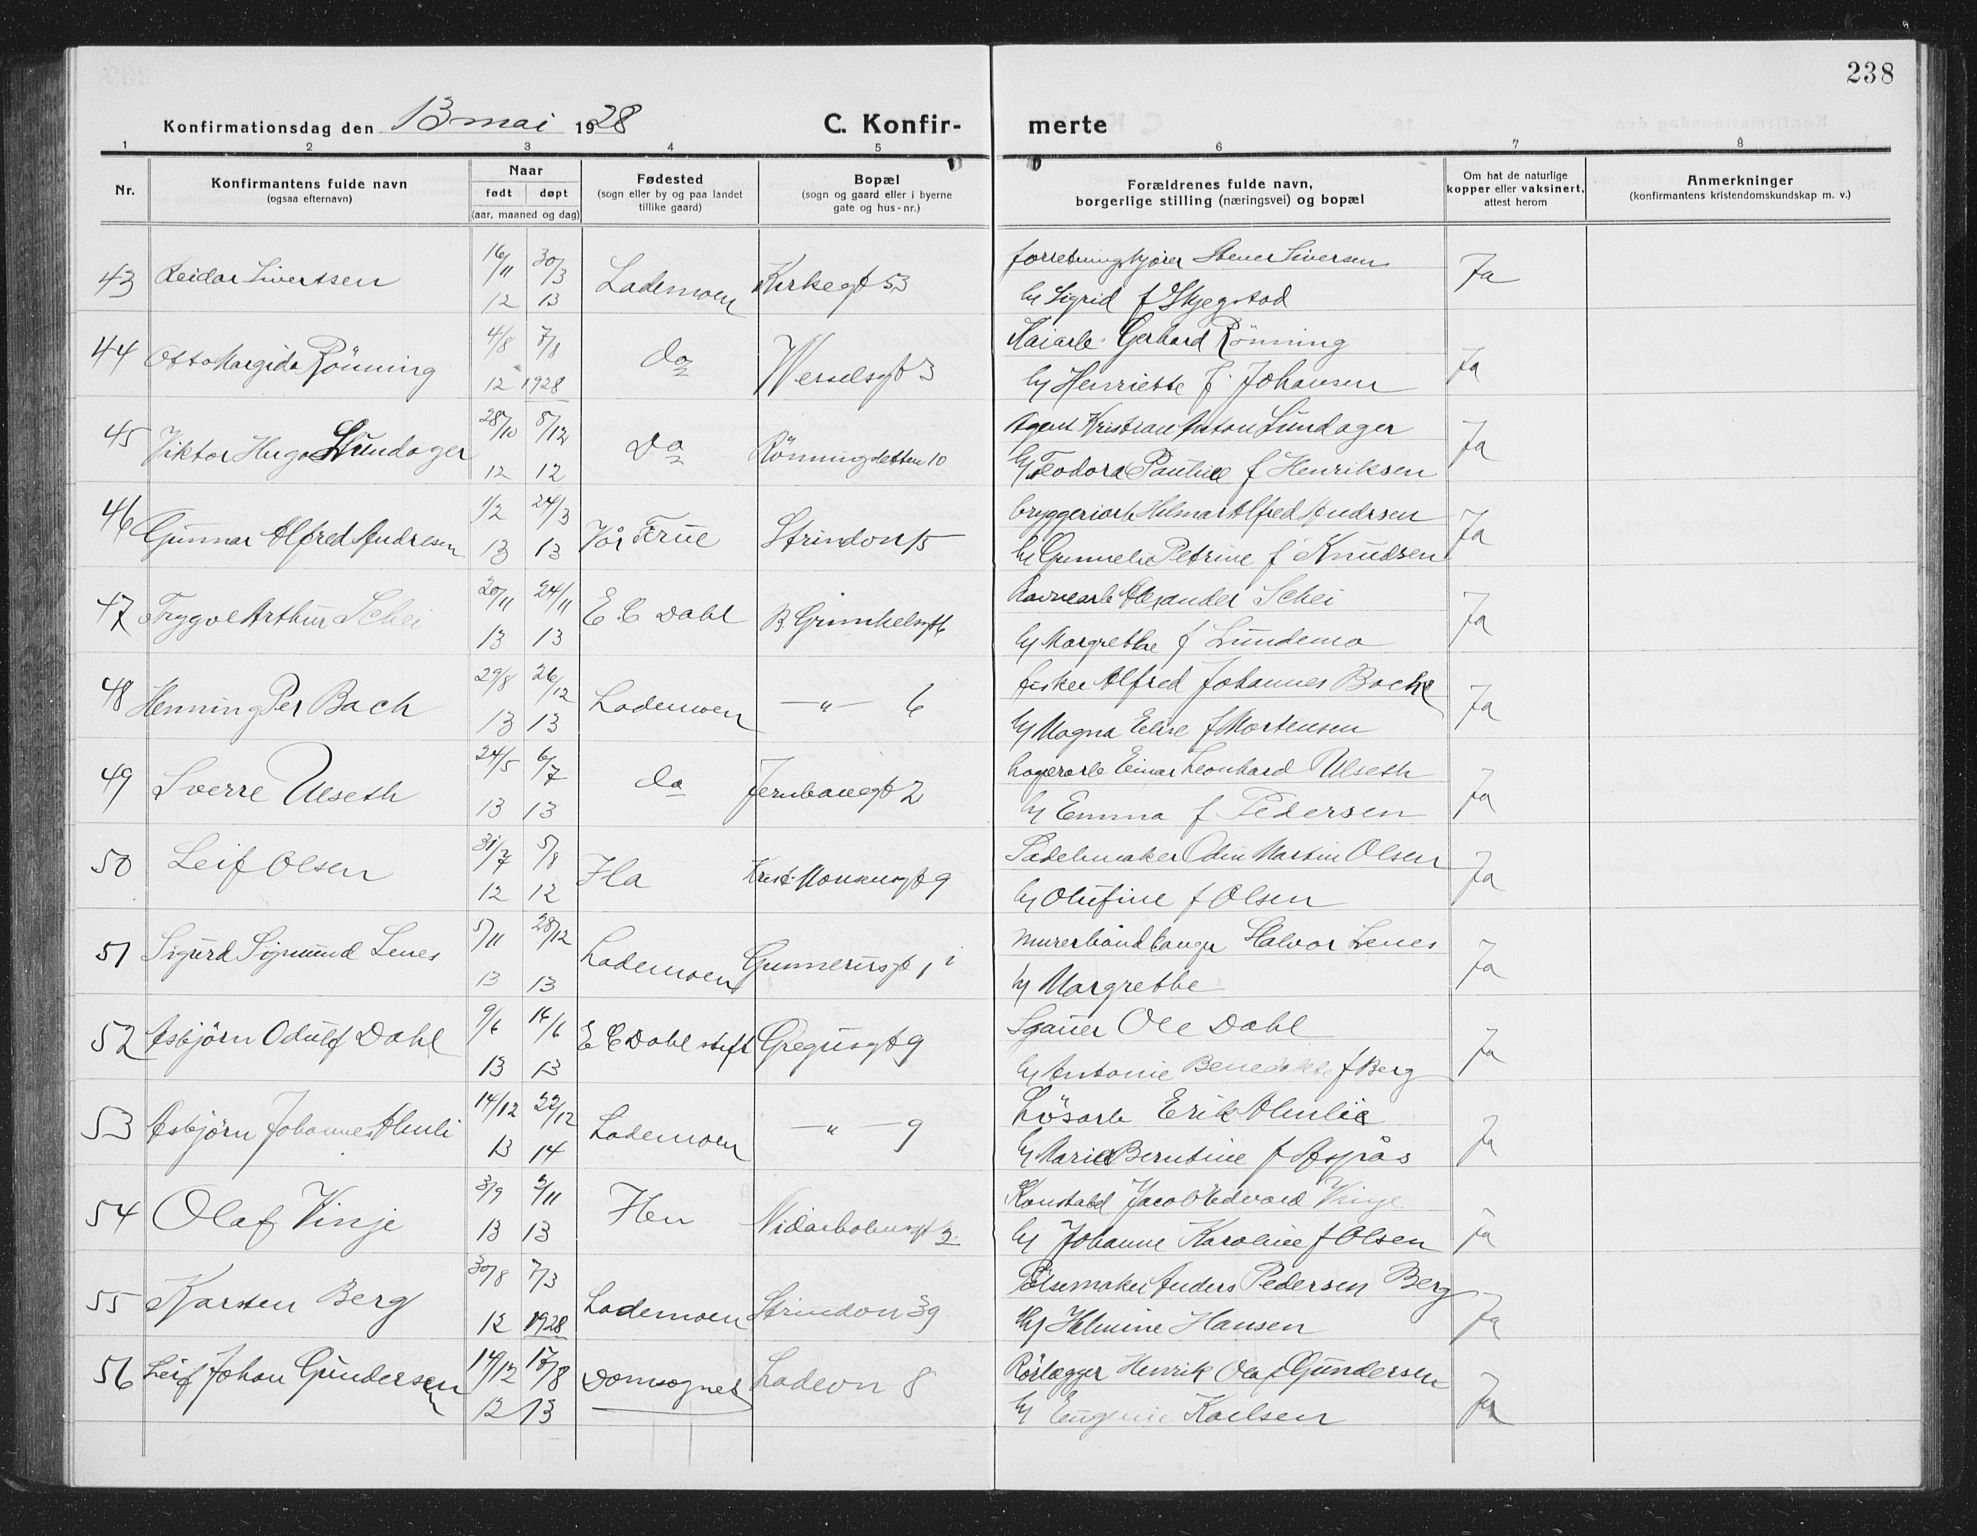 238
Konfirmationsdag den 13 mai 1928 C. Konfir- merte
1 2 3 4 5 6 7 8
Nr. Konfirmantens fulde navn (ogsaa efternavn) Naar født døpt (aar, maaned og dag) Fødested (sogn eller by og paa landet tillike gaard) Bopæl (sogn og gaard eller i byerne gate og hus-nr.) Forældrenes fulde navn, borgerlige stilling (næringsvei) og bopæl Om hat de naturlige kopper eller vaksinert, attest herom Anmerkninger (konfirmantens kristendomskundskap m. v.)
43 Reidar Sivertsen 16/11 12 30/3 13 Lademoen Kirkegt 53 Stener Siversen Ja
h/ Sigrid f Skjegstad
44 Otto Margido Rönning 4/8 12 7/8 1928 do Wesselsgt 3 Kaiarb. Gerhard Rönning Ja
h/ Henriette f. Johansen
45 Viktor Hugo Lundager 28/10 12 8/12 12 Do Rönningsletten 10 Agent Kristian Anton Lundager Ja
h/ Teodora Pauline f Henriksen
46 Gunnar Alfred Andresen 1/2 13 24/3 13 Vår Frue Strindon 15 bryggeriarb Hilmar Alfred Andrsen Ja
h/ Gunnelie Petrine f Knudsen
47 Trygve Arthur Schei 20/11 13 24/11 13 E. C Dahl Alexander Schei Ja
h/ Margrethe f Lundemo
48 Henning Per Bach 29/8 13 26/12 13 Lademoen —"— 6 fisker Alfred Johannes Bach Ja
h/ Magna Elise f Mortensen
49 Sverre Ulseth 24/5 13 6/7 13 do Jernbanegt 2 Lagerarb Einar Leonhard Ulseth Ja
h/ Emma f Pedersen
50 Leif Olsen 31/7 12 5/8 12 Ila Krist. Monsensgt 9 Sadelmaker Odin Martin Olsen Ja
h/ Olufine f Olsen
51 Sigurd Sigmund Lenes 5/11 13 28/12 13 Lademoen Gunnerusgt 1 i murerhåndlanger Halvor Lenes Ja
h/ Margrethe
52 Asbjörn Odulf Dahl 9/6 13 16/6 13 E C Dahl stift Gregusgt 9 Ole Dahl Ja
h/ Antonie Benedikte f Berg
53 Asbjörn Johannes Almli 14/12 13 22/12 14 Lademoen —"— 9 Lösarb Erik Almlie Ja
h/ Marie Berntine f Aspås
54 Olaf Vinje 3/9 13 2/11 13 Hen Konstabel Jacob Edvard Vinje ja
h/ Johanne Karoline f Olsen
55 Karsten Berg 30/8 12 7/3 1928 Lademoen Strindon 39 Pölsemaker Anders Pedersen Berg Ja
h/ Helmine Hansen
56 Leif Johan Gundersen 14/12 12 17/8 13 Domsognet Ladevn 8 Rörlægger Henrik Olaf Gundersen Ja
h/ Eugenie Karlsen